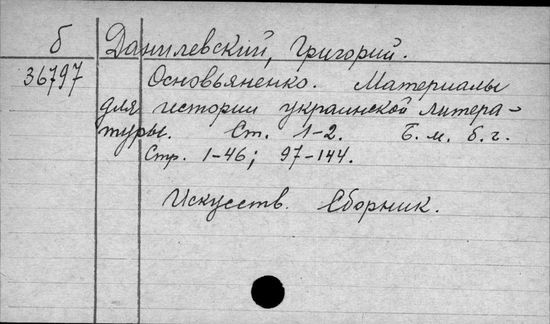 б Данилевский, Григорий.
36797 Основьяненко. Материалы
для истории украинской литера-
туры. Ст. 1-2. Б. м. б. г.
Стр. 1-46; 97-144.
Искусств. Сборник.